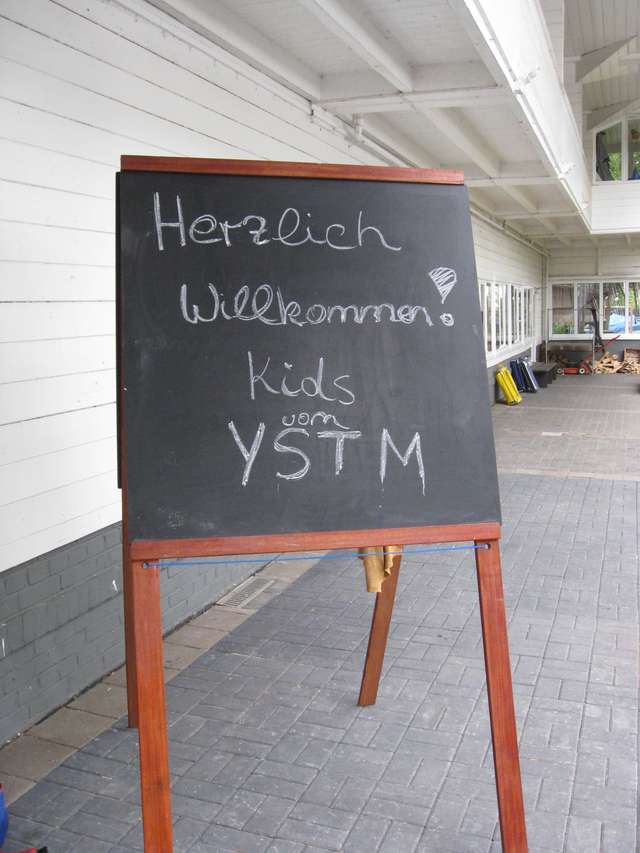 Herzlich
Willkommen!
Kids
vom
YSTM